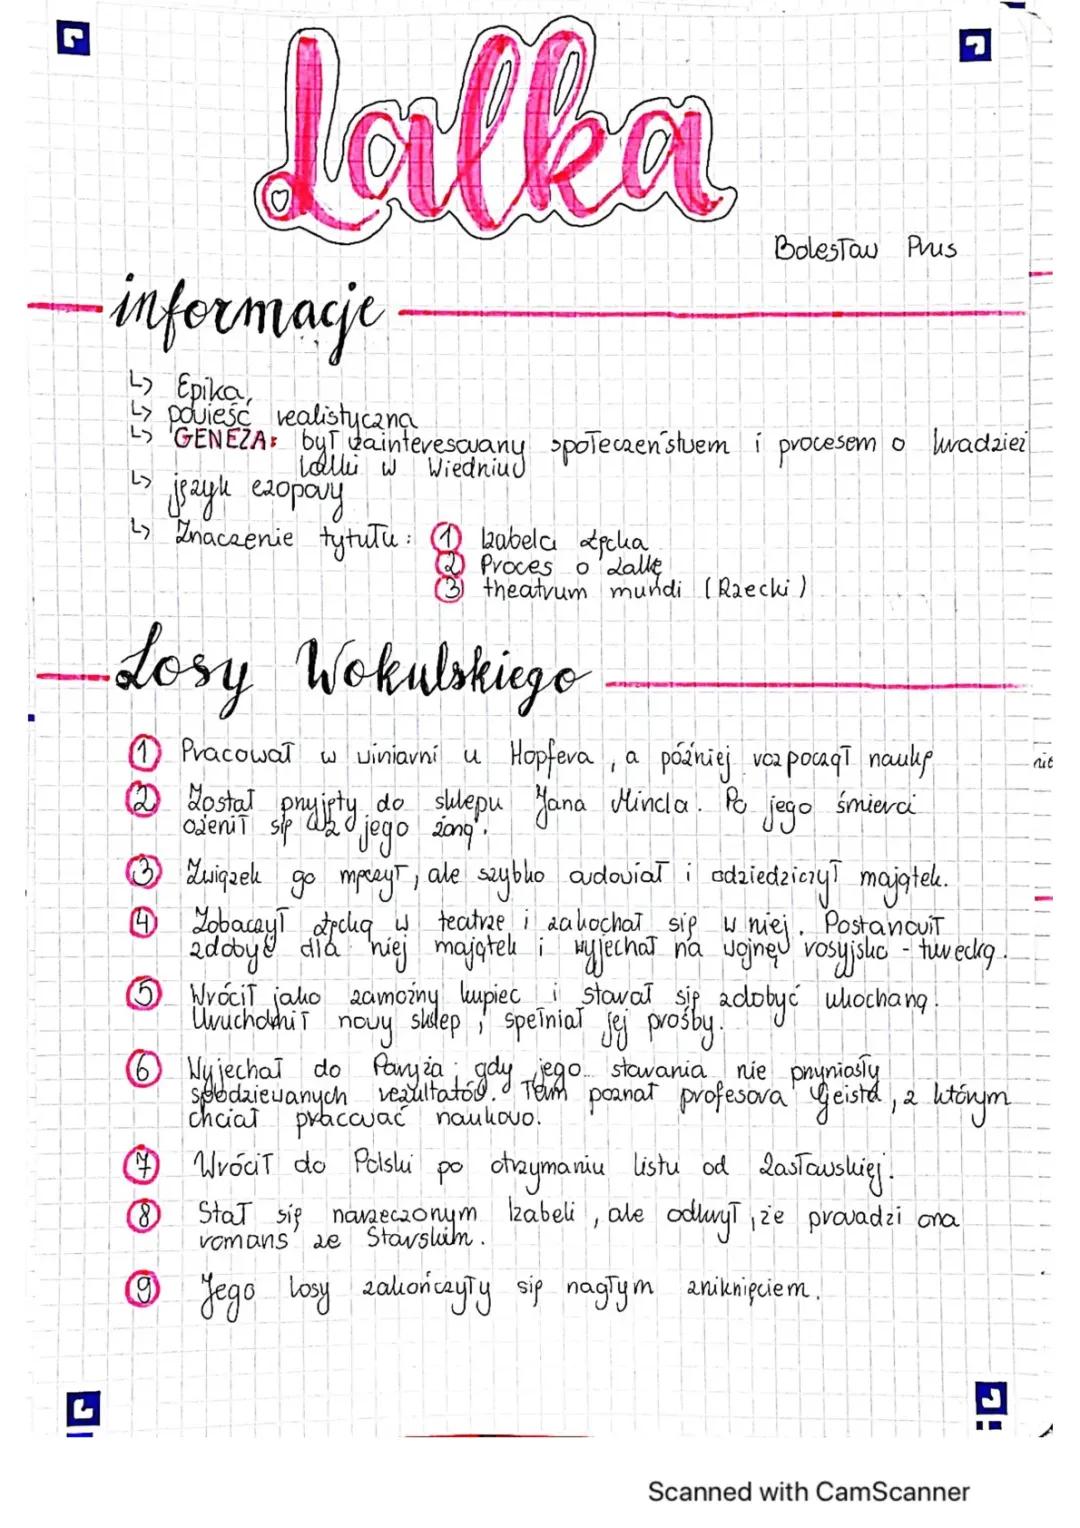 Lalka
Bolesław Prus
informacje
↳ Epika,
↳ powieść realistyczna
↳ GENEZA: był zainteresowany społeczeństwem i procesem o kradzież
lalki w Wiedniu
↳ język ezopowy
↳ Znaczenie tytułu: ① Izabela Łęcka
② Proces o lalkę
③ theatrum mundi (Rzecki)
Losy Wokulskiego
① Pracował w winiarni u Hopfera, a później rozpoczął naukę
② Został przyjęty do sklepu Jana Mincla. Po jego śmierci
ożenił się z jego żoną.
③ Związek go męczył, ale szybko owdowiał i odziedziczył majątek.
④ Zobaczył Łęcką w teatrze i zakochał się w niej. Postanowił
zdobyć dla niej majątek i wyjechał na wojnę rosyjsko - turecką.
⑤ Wrócił jako zamożny kupiec i starał się zdobyć ukochaną.
Uruchomił nowy sklep, spełniał jej prośby.
⑥ Wyjechał do Paryża gdy jego starania nie przyniosły
spodziewanych rezultatów. Tam poznał profesora Geista, z którym
chciał pracować naukowo.
⑦ Wrócił do Polski po otrzymaniu listu od Zasławskiej.
⑧ Stał się narzeczonym Izabeli, ale odkrył, że prowadzi ona
romans ze Starskim.
⑨ Jego losy zakończyły się nagłym zniknięciem.
Scanned with CamScanner